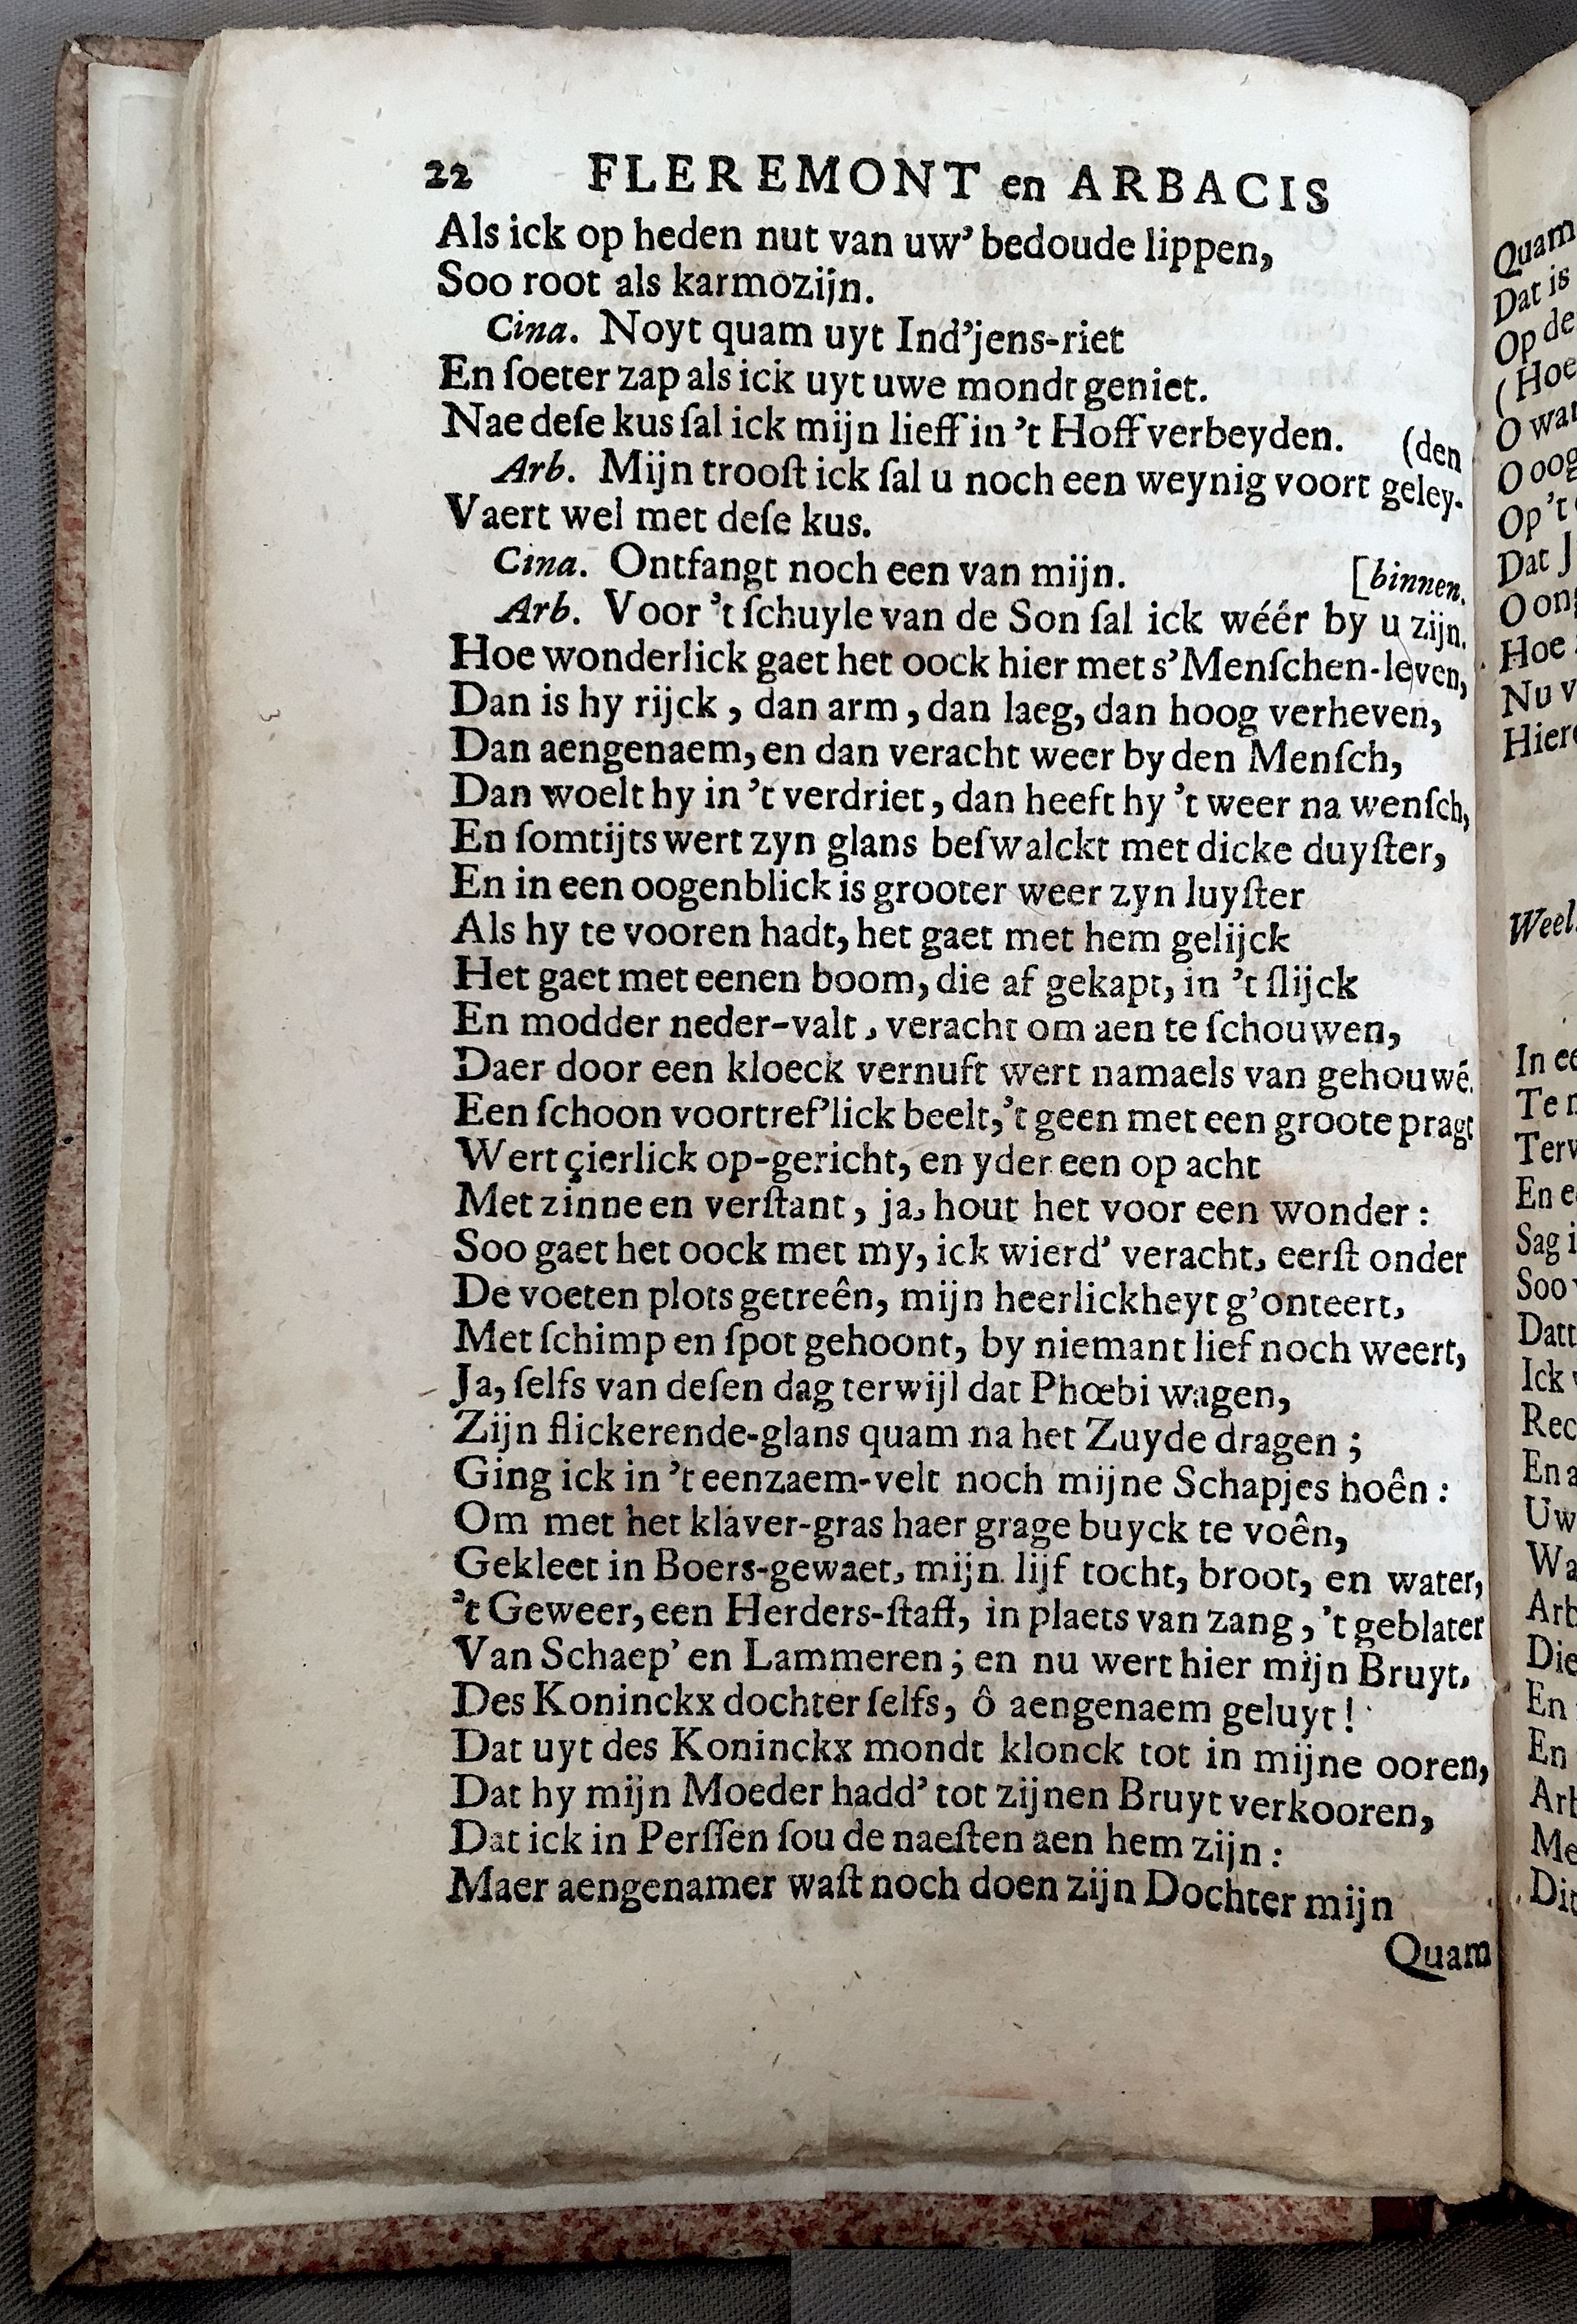 22 FLEREMONT en ARBACIS
Als ick op heden nut van uw’ bedoude lippen,
Soo root als karmozijn.
Cina. Noyt quam uyt Ind’jens-riet
En ſoeter zap als ick uyt uwe mondt geniet.
Nae deſe kus ſal ick mijn lieff in ’t Hoff verbeyden. (den
Arb. Mijn trooſt ick ſal u noch een weynig voort geley-
Vaert wel met deſe kus.
Cina. Ontfangt noch een van mijn. [binnen.
Arb. Voor ’t ſchuyle van de Son ſal ick wéér by u zijn.
Hoe wonderlick gaet het oock hier met s’Menſchen-leven,
Dan is hy rijck, dan arm, dan laeg, dan hoog verheven,
Dan aengenaem, en dan veracht weer by den Menſch,
Dan woelt hy in ’t verdriet, dan heeft hy ’t weer na wenſch,
En ſomtijts wert zyn glans beſwalckt met dicke duyſter,
En in een oogenblick is grooter weer zyn luyſter
Als hy te vooren hadt, het gaet met hem gelijck
Het gaet met eenen boom, die af gekapt, in ’t ſlijck
En modder neder-valt, veracht om aen te ſchouwen,
Daer door een kloeck vernuft wert namaels van gehouwē.
Een ſchoon voortref’lick beelt, ’t geen met een groote pragt
Wert çierlick op-gericht, en yder een op acht
Met zinne en verſtant, ja, hout het voor een wonder:
Soo gaet het oock met my, ick wierd’ veracht, eerſt onder
De voeten plots getreên, mijn heerlickheyt g’onteert,
Met ſchimp en ſpot gehoont, by niemant lief noch weert,
Ja, ſelfs van deſen dag terwijl dat Phœbi wagen,
Zijn flickerende-glans quam na het Zuyde dragen;
Ging ick in ’t eenzaem-velt noch mijne Schapjes hoên:
Om met het klaver-gras haer grage buyck te voên,
Gekleet in Boers-gewaet, mijn lijf tocht, broot, en water,
’t Geweer, een Herders-ſtaff, in plaets van zang, ’t geblater
Van Schaep’ en Lammeren; en nu wert hier mijn Bruyt,
Des Koninckx dochter ſelfs, ô aengenaem geluyt!
Dat uyt des Koninckx mondt klonck tot in mijne ooren,
Dat hy mijn Moeder hadd’ tot zijnen Bruyt verkooren,
Dat ick in Perſſen ſou de naeſten aen hem zijn:
Maer aengenamer waſt noch doen zijn Dochter mijn
Quam
Quam
Dat is
Op de
(Hoe
O
O
Op ’t
Dat
O
Hoe
Nu
Weel.
In
Te
En
Sag
Soo
Ick
En
Uw
Die
En
En